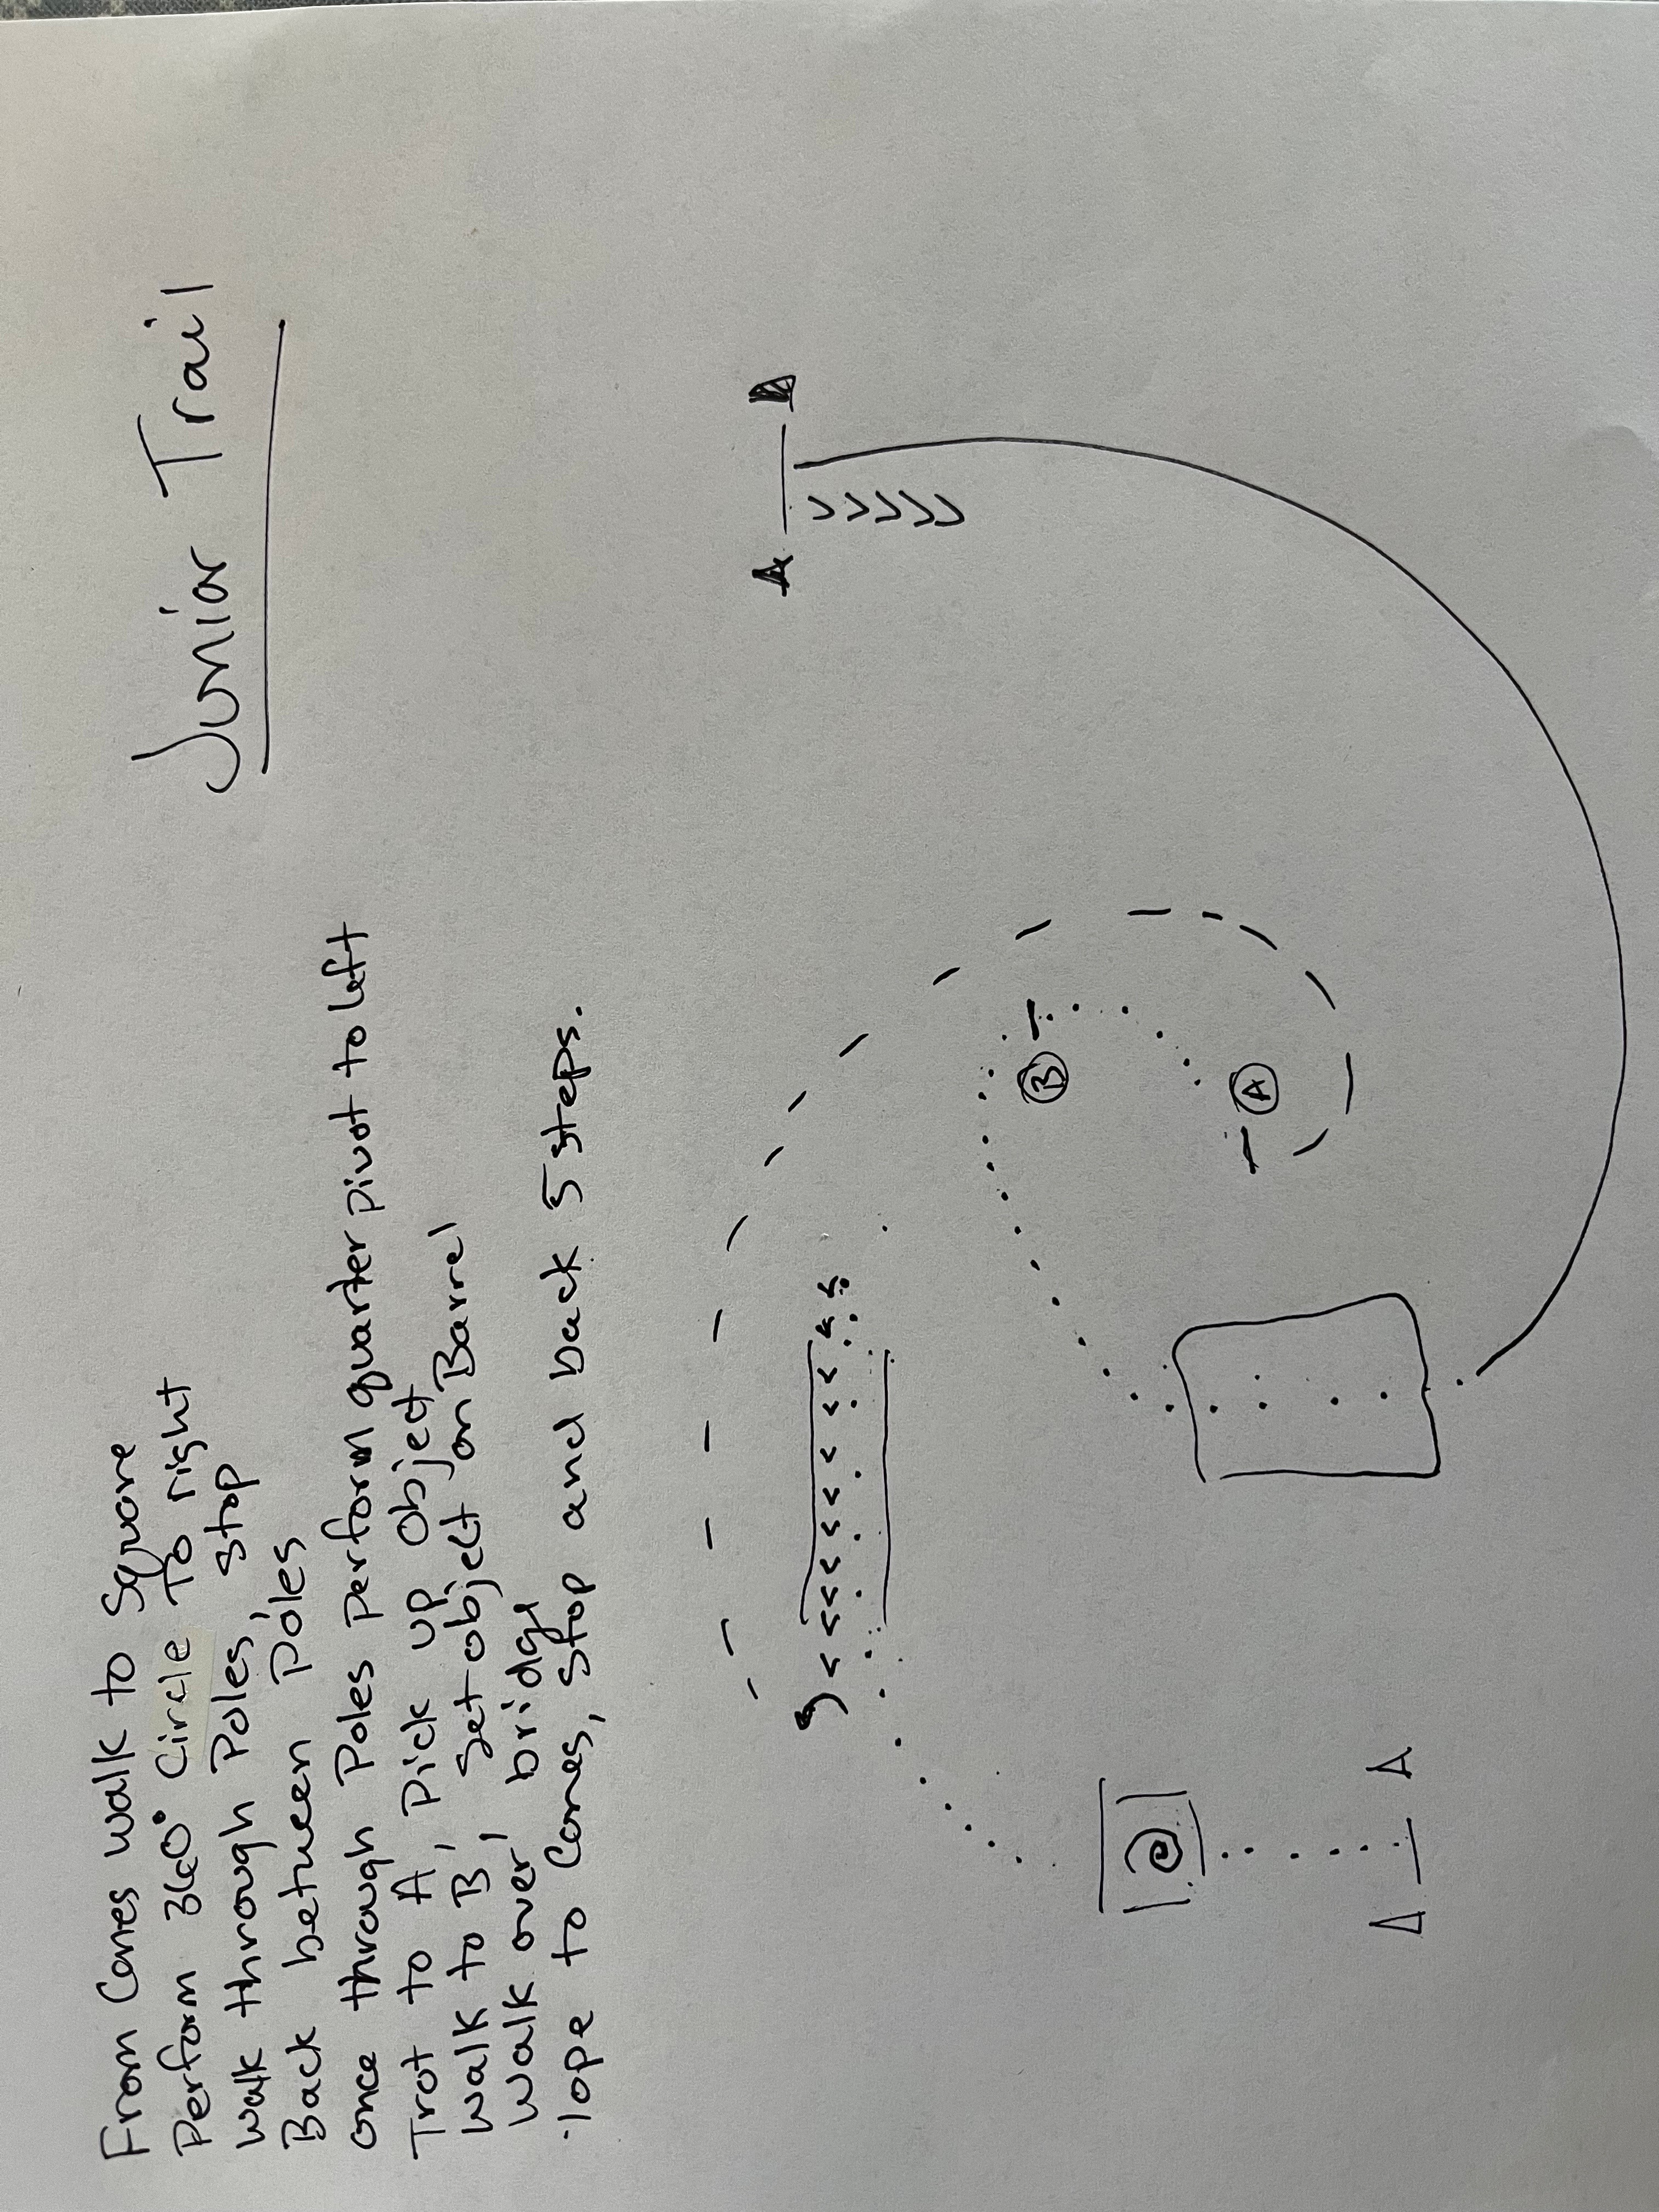 Junior Trail
From Cones walk to Square
Perform 360° Circle To right
walk through Poles, Stop
Back between Poles
once through Poles perform quarter pivot to left
Trot to A, Pick up Object
Walk to B, Set object on Barrel
Walk over bridge
lope to Cones, Stop and back 5 steps.
B
A